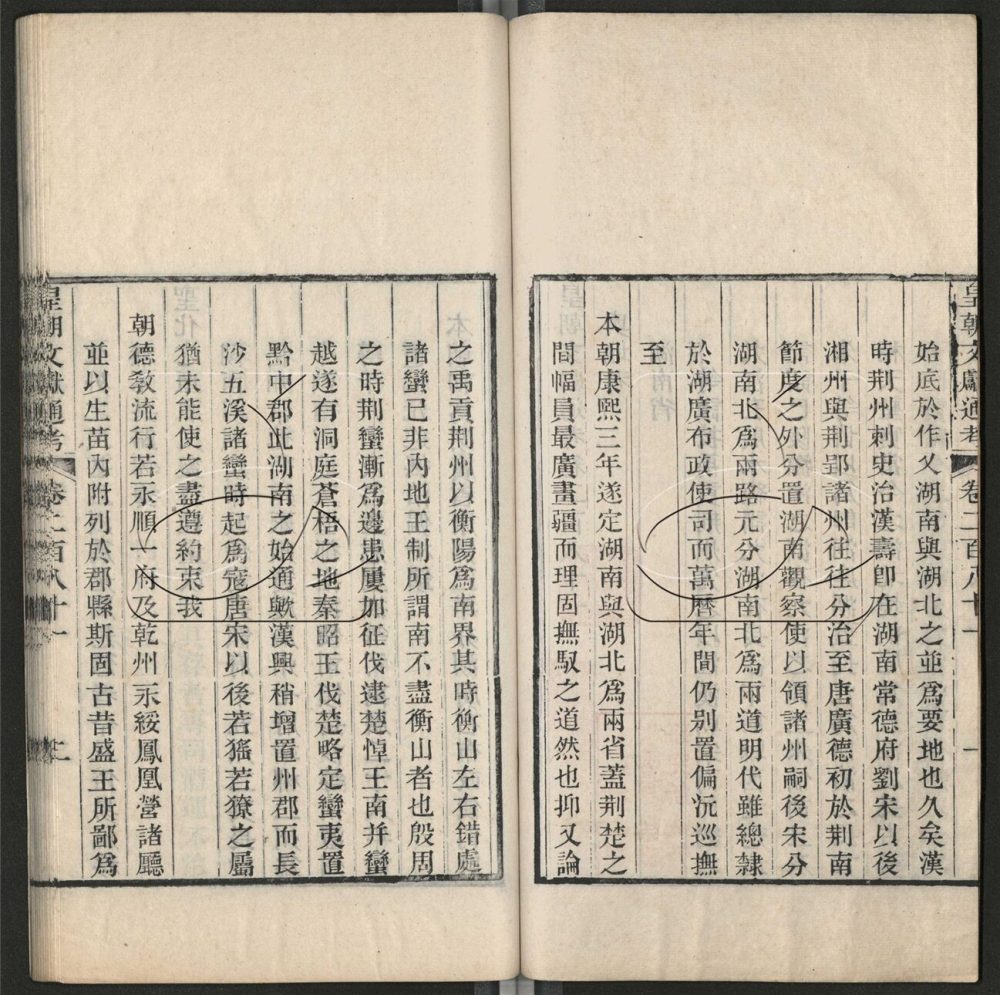 皇朝文獻通考 卷二百八十一
始底於作乂湖南與湖北之並爲要地也久矣漢
時荆州刺史治漢壽卽在湖南常德府劉宋以後
湘州與荆郢諸州往往分治至唐廣德初於荆南
節度之外分置湖南觀察使以領諸州嗣後宋分
湖南北爲兩路元分湖南北爲兩道明代雖總隸
於湖廣布政使司而萬曆年間仍别置偏沅巡撫
至
本朝康熙三年遂定湖南與湖北爲兩省蓋荆楚之
間幅員最廣畫疆而理固撫馭之道然也抑又論
之禹貢荆州以衡陽爲南界其時衡山左右錯處
諸蠻已非内地王制所謂南不盡衡山者也殷周
之時荆蠻漸爲邊患屢加征伐逮楚悼王南并蠻
越遂有洞庭蒼梧之地秦昭王伐楚略定蠻夷置
黔中郡此湖南之始通歟漢興稍增置州郡而長
沙五溪諸蠻時起爲寇唐宋以後若猺若獠之屬
猶未能使之盡遵約束我
朝德敎流行若永順一府及乾州永綏鳳凰營諸廳
並以生苗内附列於郡縣斯固古昔盛王所鄙爲
皇朝文獻通考 卷二百八十一